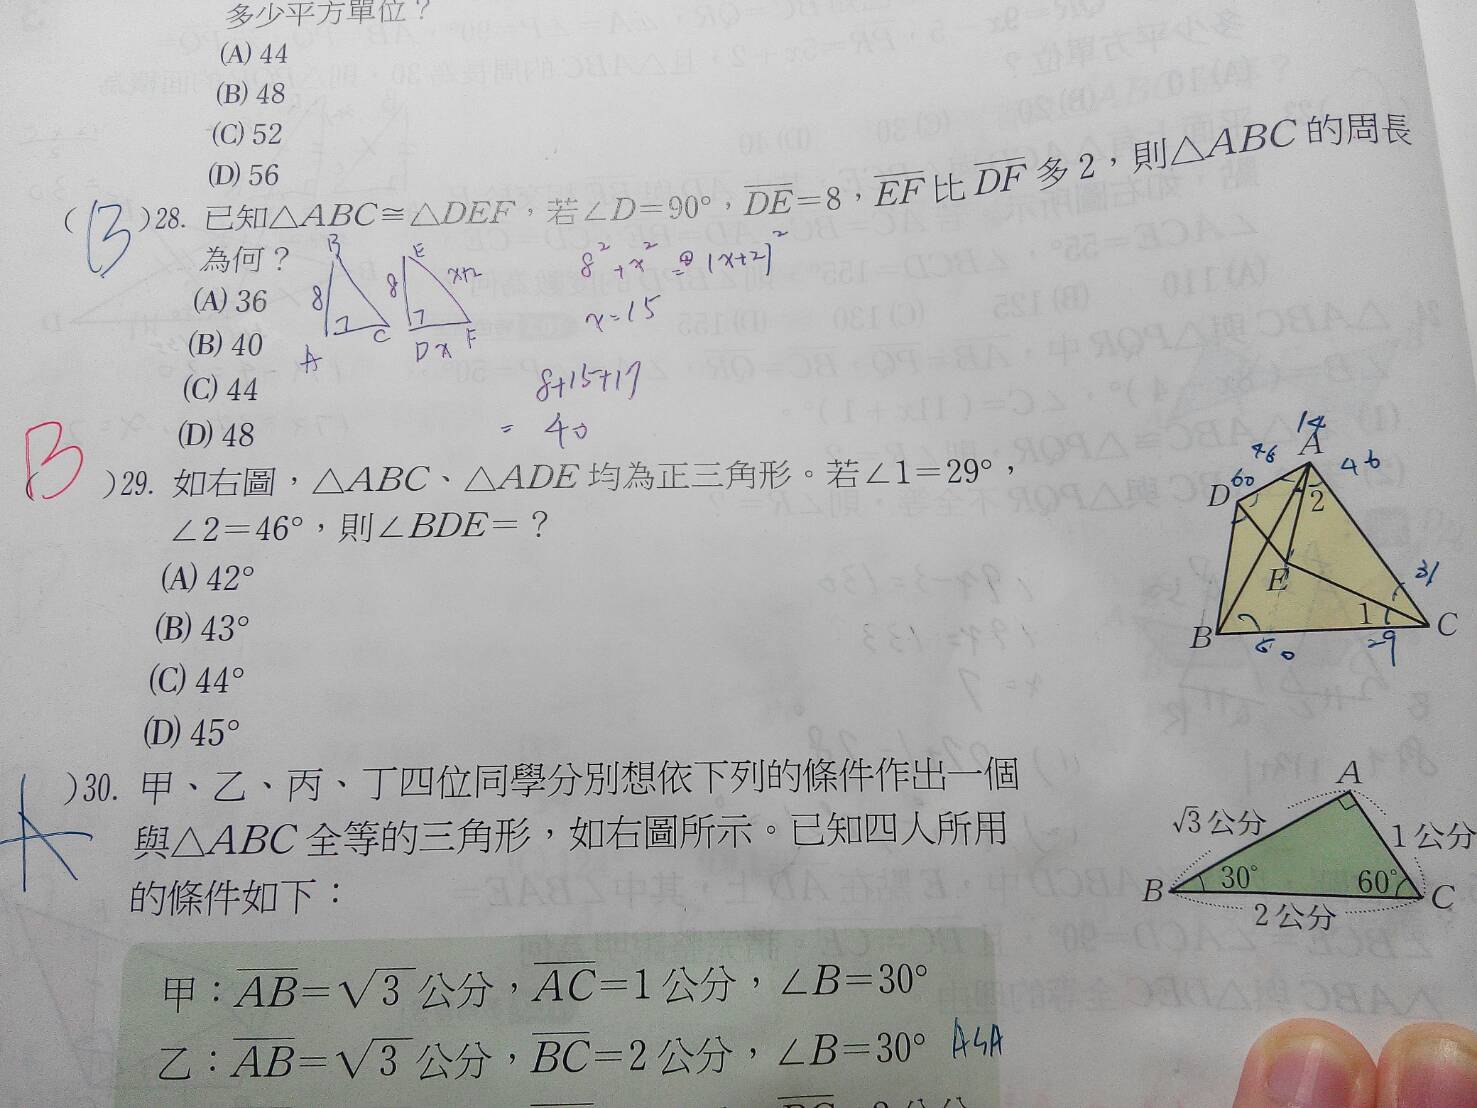 多少平方單位？
(A) 44
(B) 48
(C) 52
(D) 56
( B )28. 已知△ABC≅△DEF，若∠D=90°，DE=8，EF比DF多2，則△ABC的周長
為何？
(A) 36
(B) 40
(C) 44
(D) 48
B
8
A
C
E
8
x+2
D x F
8²+x²=(x+2)²
x=15
8+15+17
= 40
B )29. 如右圖，△ABC、△ADE均為正三角形。若∠1=29°，
∠2=46°，則∠BDE=？
(A) 42°
(B) 43°
(C) 44°
(D) 45°
14
A
46
46
D
60
2
E
31
B
1
C
60
29
A )30. 甲、乙、丙、丁四位同學分別想依下列的條件作出一個
與△ABC全等的三角形，如右圖所示。已知四人所用
的條件如下：
A
√3公分
1公分
B
30°
60°
C
2公分
甲：AB=√3公分，AC=1公分，∠B=30°
乙：AB=√3公分，BC=2公分，∠B=30° ASA